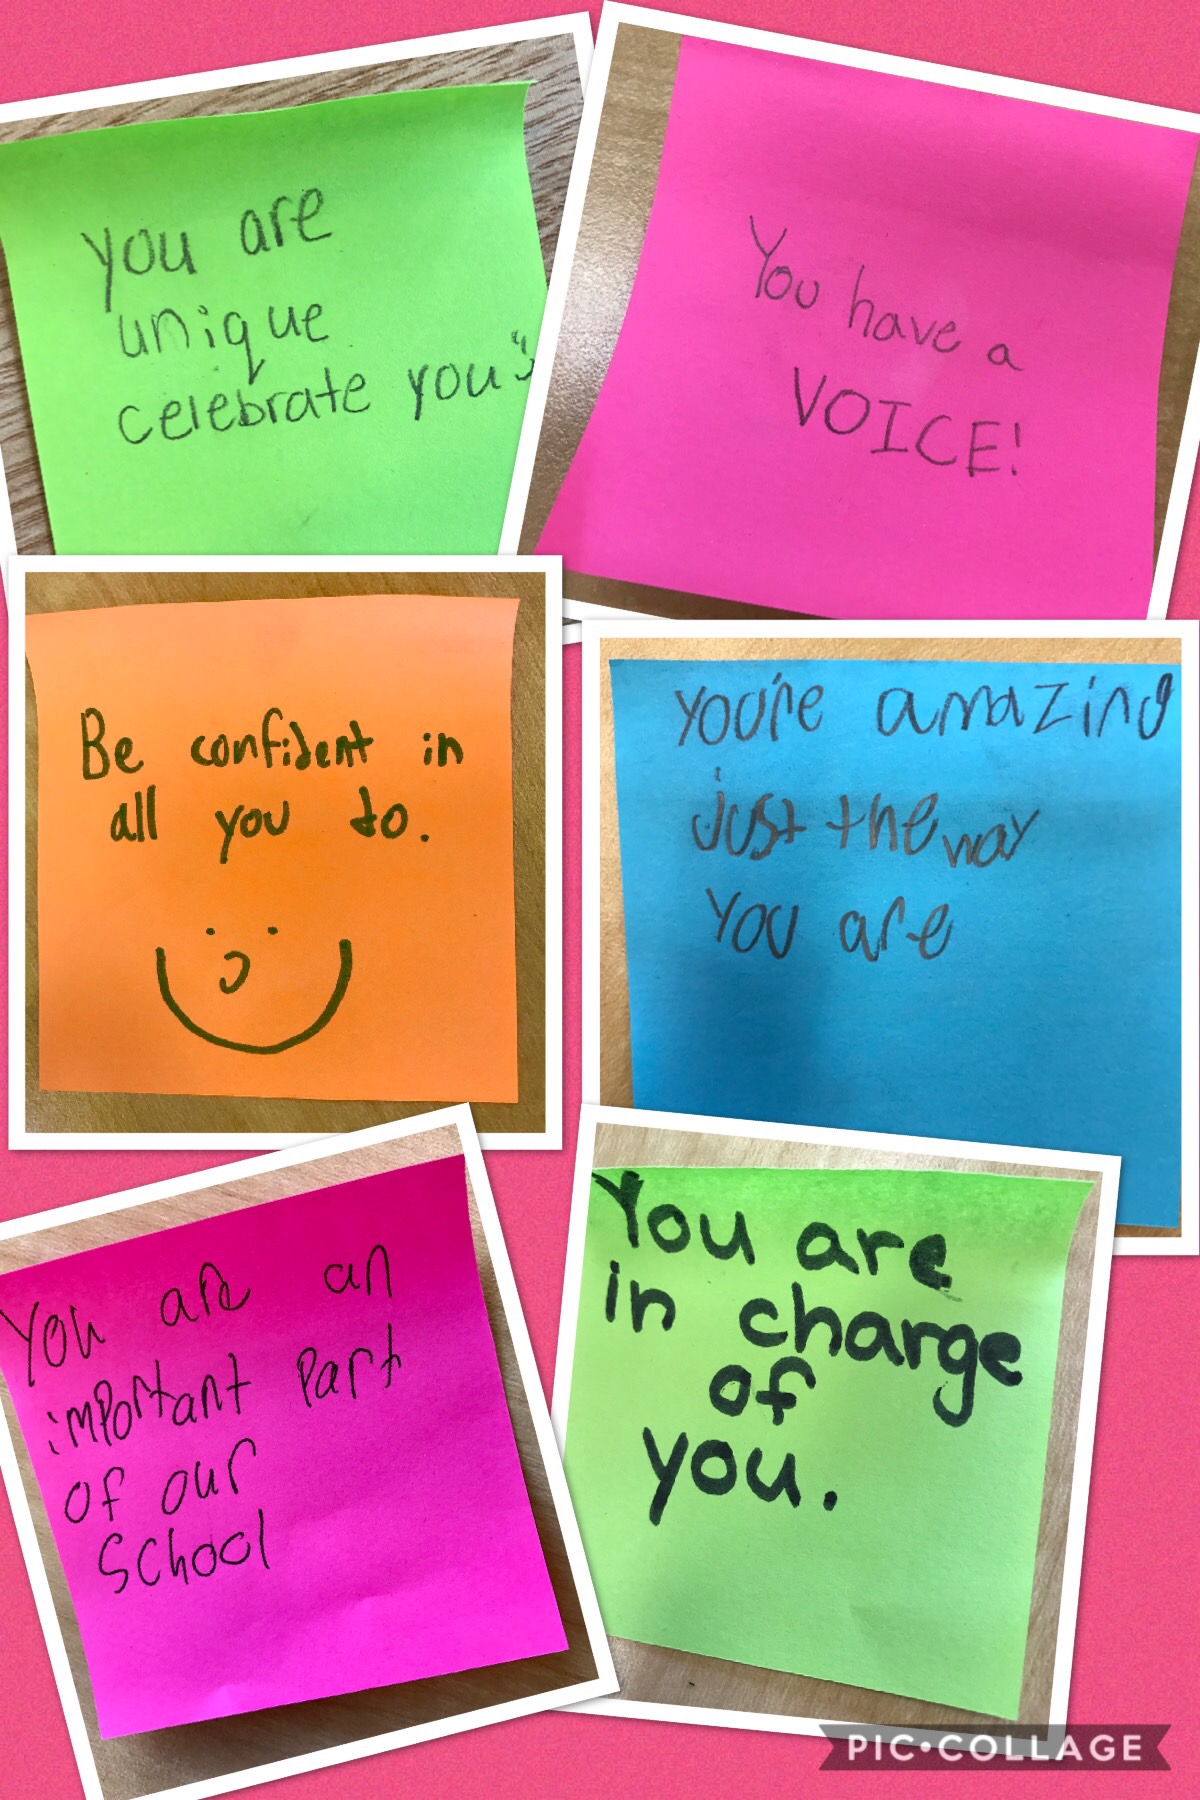 you are
unique
celebrate you
You have a
VOICE!
Be confident in
all you do.
you're amazing
just the way
you are
You are an
important part
of our
School
You are
in charge
of
you.
PIC•COLLAGE